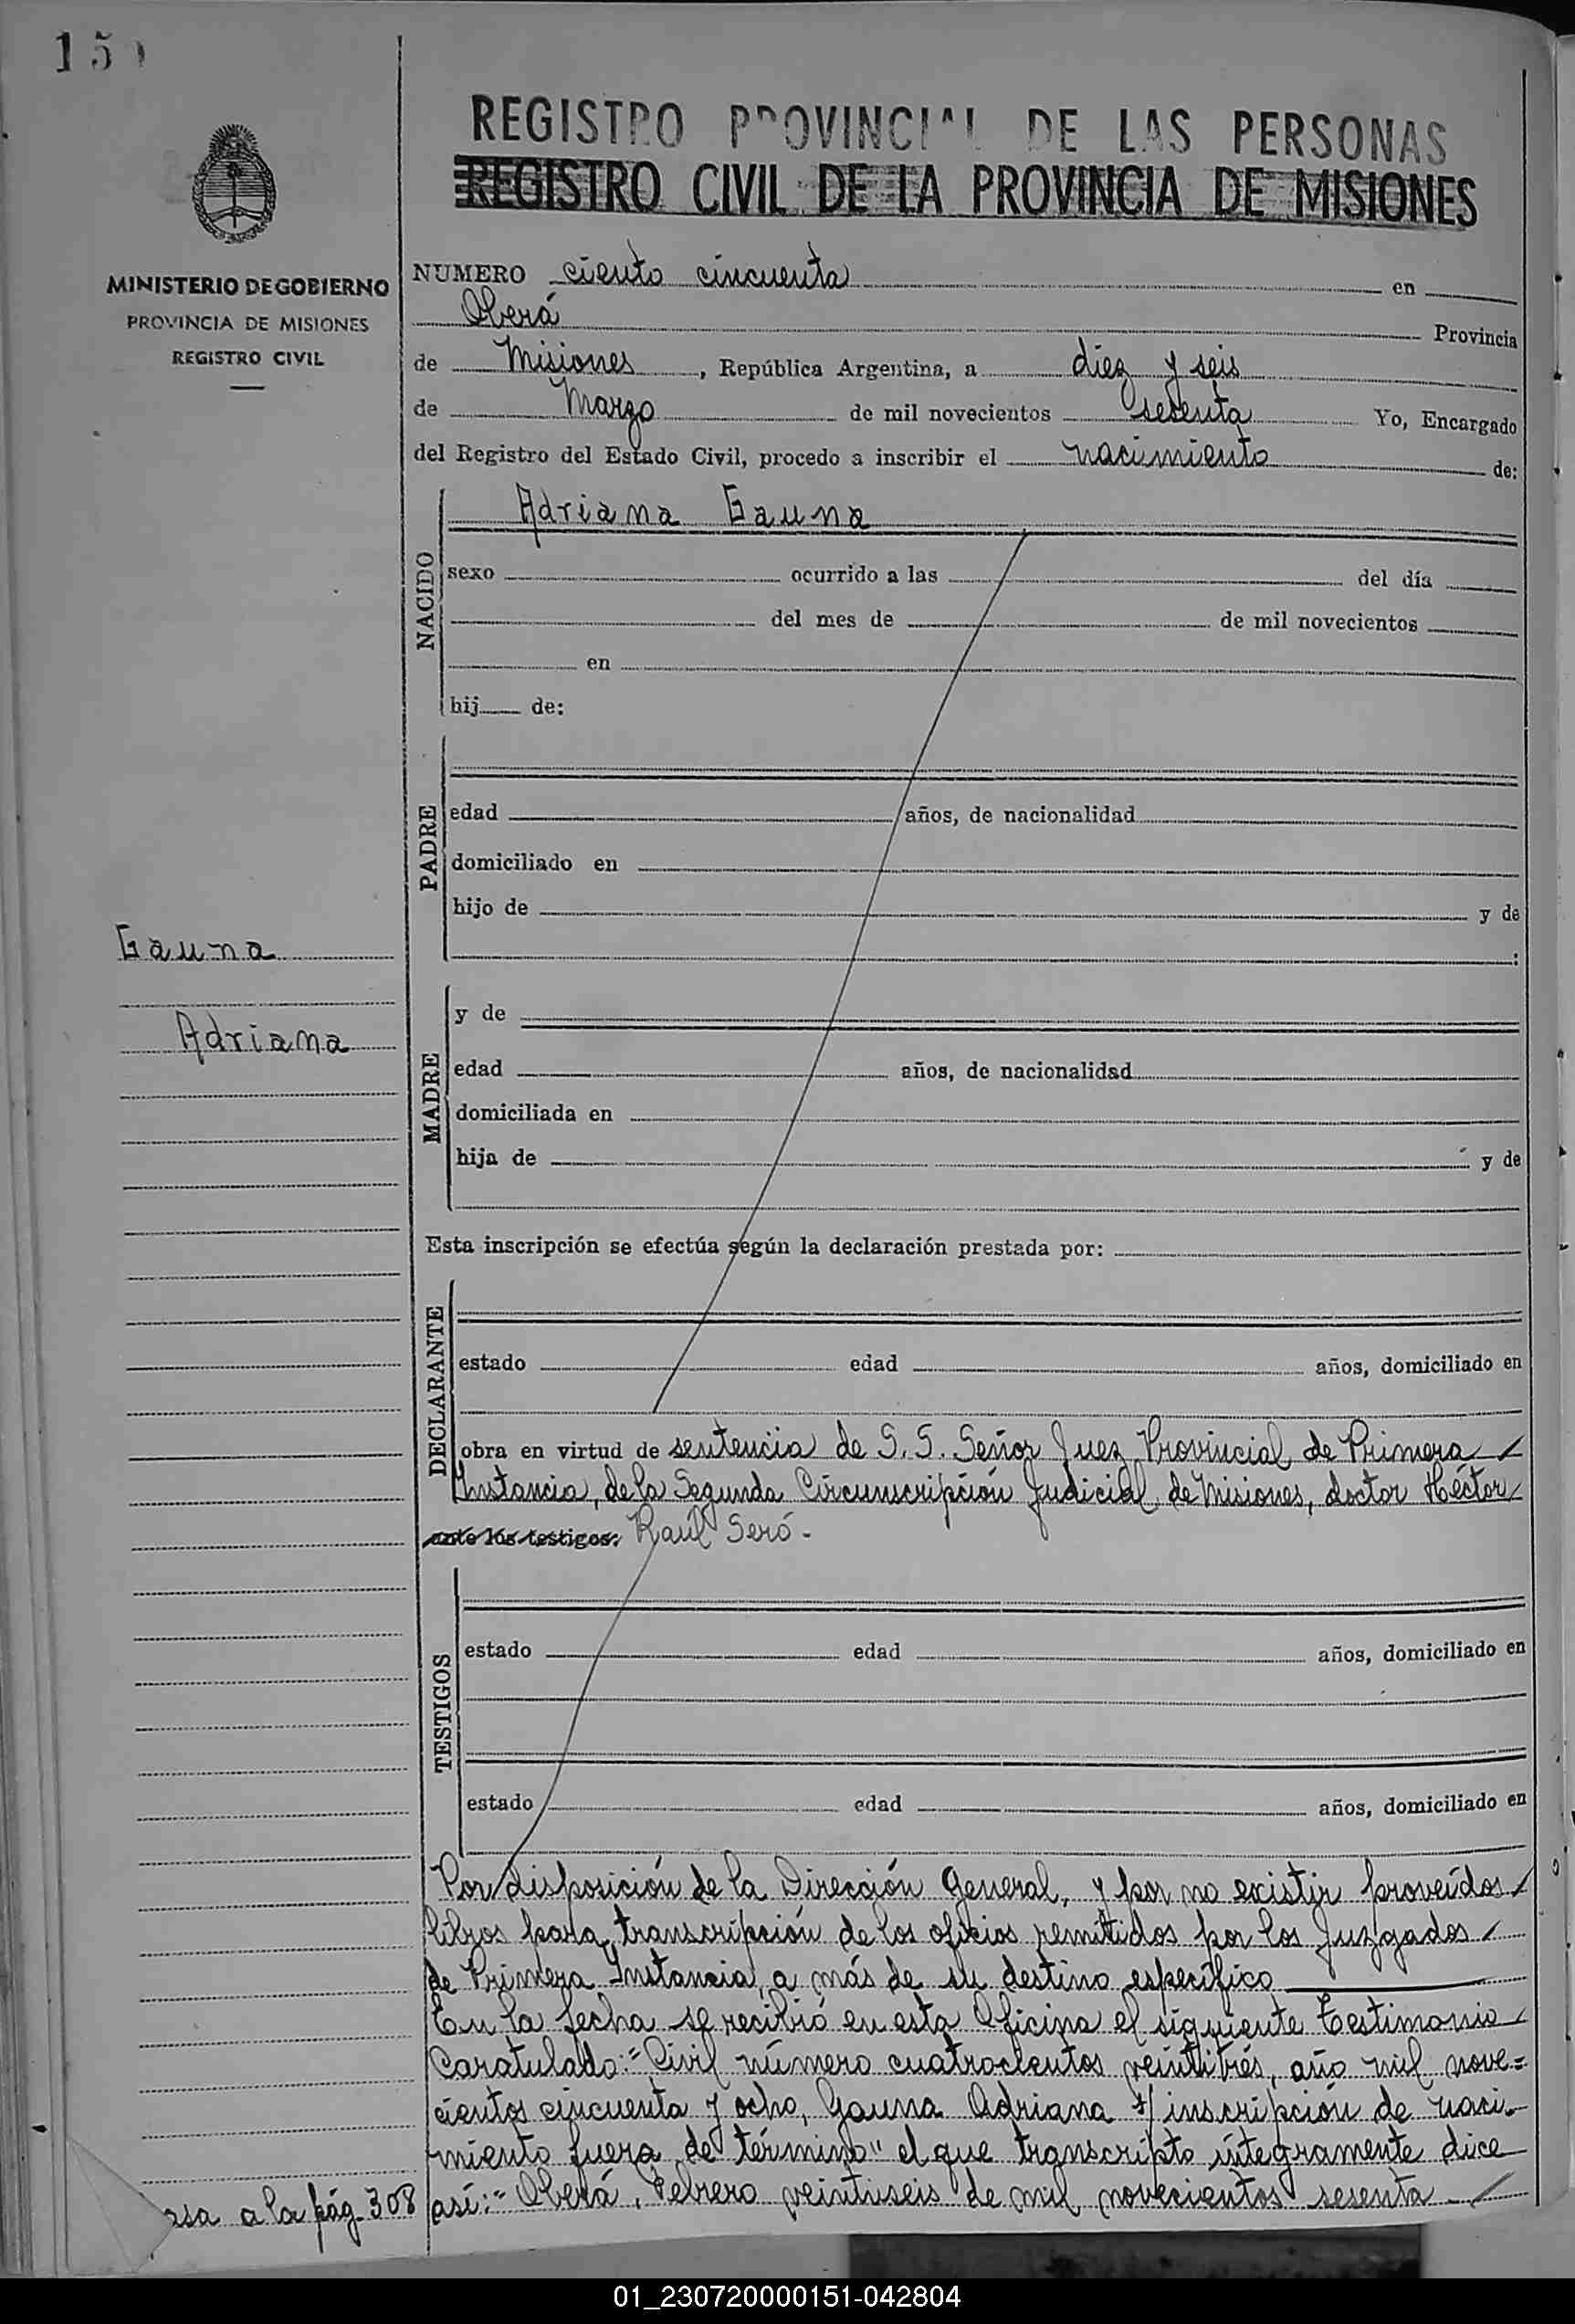 150
REGISTRO PROVINCIAL DE LAS PERSONAS
REGISTRO CIVIL DE LA PROVINCIA DE MISIONES
MINISTERIO DE GOBIERNO
PROVINCIA DE MISIONES
REGISTRO CIVIL
NUMERO ciento cincuenta en
Oberá Provincia
de Misiones, República Argentina, a diez y seis
de Marzo de mil novecientos sesenta Yo, Encargado
del Registro del Estado Civil, procedo a inscribir el nacimiento de:
NACIDO
Adriana Gauna
sexo ocurrido a las del día
del mes de de mil novecientos
en
hij de:
PADRE
edad años, de nacionalidad
domiciliado en
hijo de y de
:
Gauna
Adriana
MADRE
y de
edad años, de nacionalidad
domiciliada en
hija de y de
Esta inscripción se efectúa según la declaración prestada por:
DECLARANTE
estado edad años, domiciliado en
obra en virtud de sentencia de S. S. Señor Juez Provincial de Primera /
Instancia, de la Segunda Circunscripción Judicial de Misiones, doctor Héctor /
ante los testigos: Raúl Seró.-
TESTIGOS
estado edad años, domiciliado en
estado edad años, domiciliado en
Por disposición de la Dirección General, y por no existir proveídos /
libros para transcripción de los oficios remitidos por los Juzgados /
de Primera Instancia, a más de su destino específico
En la fecha se recibió en esta Oficina el siguiente Testimonio /
Caratulado:= "Civil número cuatrocientos veintitrés, año mil nove=
cientos cincuenta y ocho, Gauna Adriana s/ inscripción de naci-
miento fuera de término" el que transcripto íntegramente dice
así:= Oberá, Febrero veintiseis de mil novecientos sesenta.- /
asa a la pág. 308
01_230720000151-042804